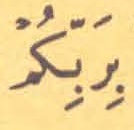 بِرَبِّكُمْ